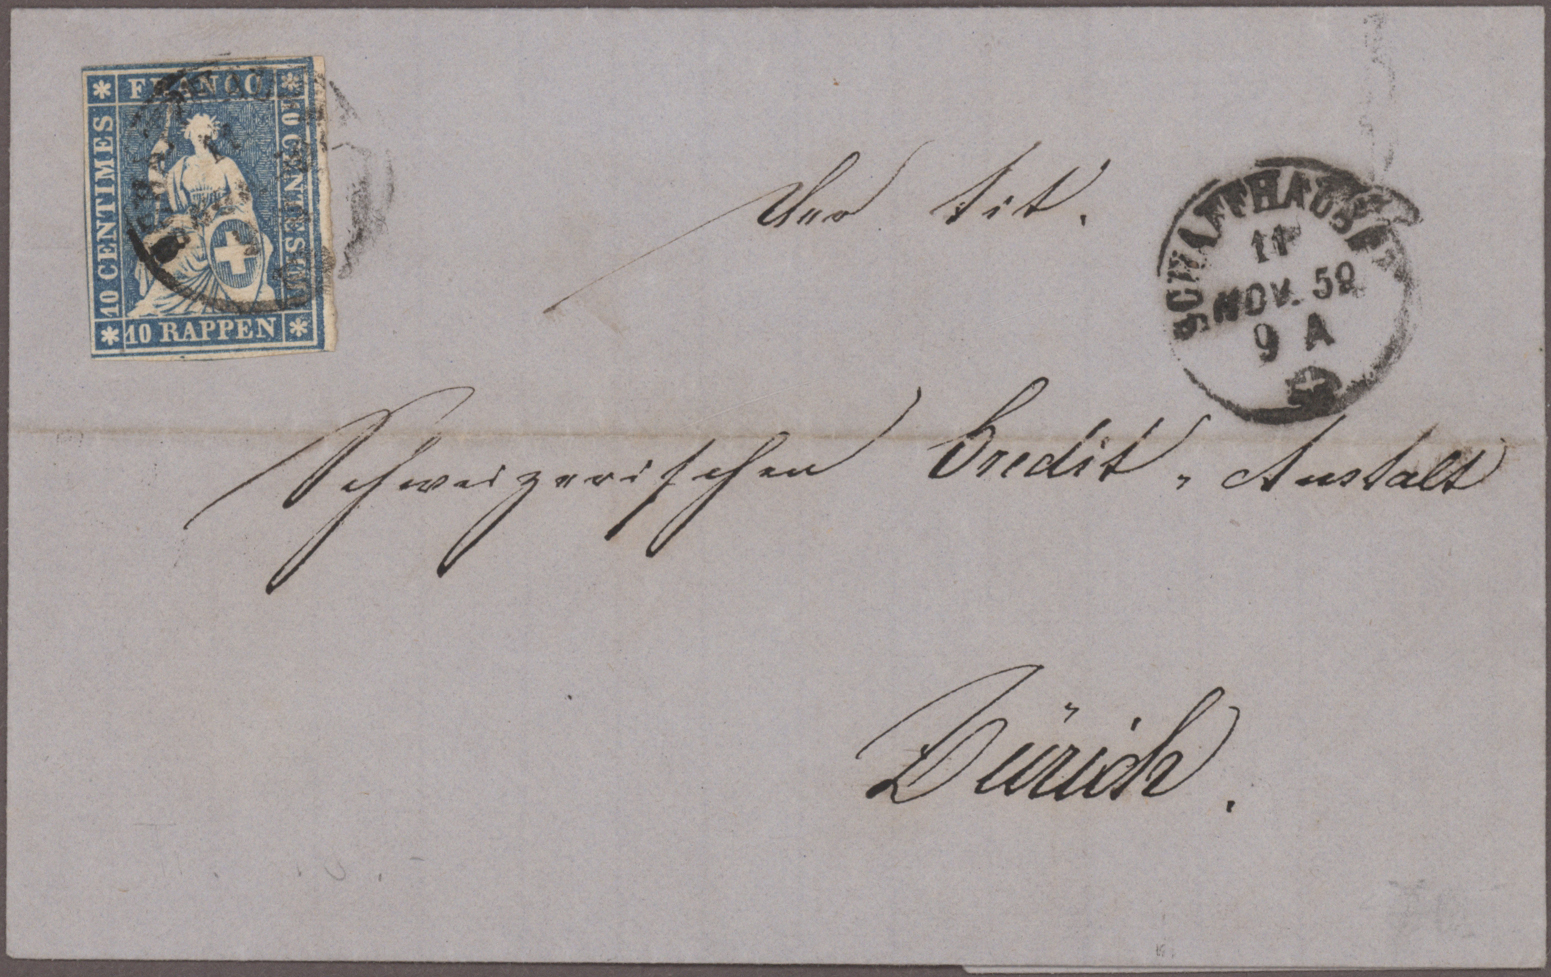 FRANCO
10 CENTIMES
10 RAPPEN
Der Tit.
SCHAFFHAUSEN
11
NOV. 59
9 A
Schweizerischen Credit-Anstalt
Zürich.